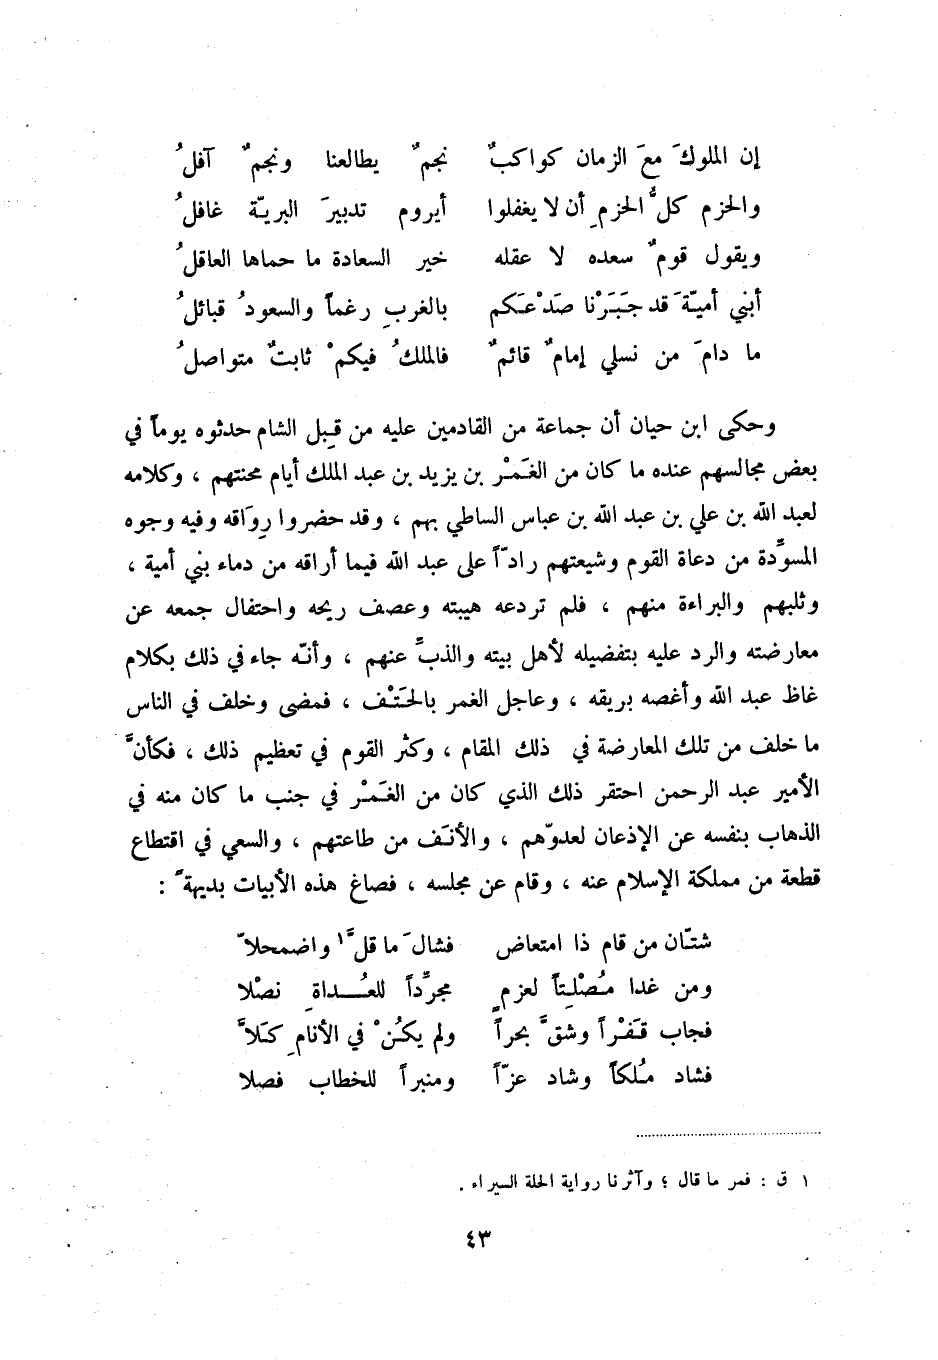 إن الملوكَ معَ الزمان كواكبٌ نجمٌ يطالعنا ونجمٌ آفلُ
والحزم كلُّ الحزمِ أن لا يغفلوا أيروم تدبيرَ البريّة غافلُ
ويقول قومٌ سعده لا عقله خير السعادة ما حماها العاقلُ
أبني أميّةَ قد جَبَرْنا صَدْعَكم بالغربِ رغماً والسعودُ قبائلُ
ما دامَ من نسلي إمامٌ قائمٌ فالملكُ فيكمْ ثابتٌ متواصلُ
وحكى ابن حيان أن جماعة من القادمين عليه من قِبل الشام حدثوه يوماً في
بعض مجالسهم عنده ما كان من الغَمْر بن يزيد بن عبد الملك أيام محنتهم ، وكلامه
لعبد الله بن علي بن عبد الله بن عباس الساطي بهم ، وقد حضروا رِوَاقه وفيه وجوه
المسوِّدة من دعاة القوم وشيعتهم رادّاً على عبد الله فيما أراقه من دماء بني أمية ،
وثلبهم والبراءة منهم ، فلم تردعه هيبته وعصف ريحه واحتفال جمعه عن
معارضته والرد عليه بتفضيله لأهل بيته والذبِّ عنهم ، وأنّه جاء في ذلك بكلام
غاظ عبد الله وأغصه بريقه ، وعاجل الغمر بالحَتْف ، فمضى وخلف في الناس
ما خلف من تلك المعارضة في ذلك المقام ، وكثر القوم في تعظيم ذلك ، فكأنَّ
الأمير عبد الرحمن احتقر ذلك الذي كان من الغَمْر في جنب ما كان منه في
الذهاب بنفسه عن الإذعان لعدوّهم ، والأنَف من طاعتهم ، والسعي في اقتطاع
قطعة من مملكة الإسلام عنه ، وقام عن مجلسه ، فصاغ هذه الأبيات بديهةً :
شتّان من قام ذا امتعاض فشالَ ما قلَّ١ واضمحلاّ
ومن غدا مُصْلِتاً لعزمٍ مجرِّداً للعُداةِ نصْلا
فجاب قَفْراً وشقَّ بحراً ولم يكُنْ في الأنامِ كَلاَّ
فشاد مُلكاً وشاد عزّاً ومنبراً للخطاب فصلا
١ ق : فمر ما قال ؛ وآثرنا رواية الحلة السيراء .
٤٣